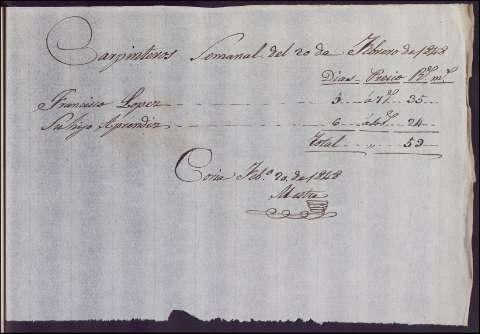 Carpinteros Semanal del 20 de Febrero de 1848
Dias Precio R.^s m.^s
Francisco Lopez 5 á 7 r.^s 35
Su hijo Aprendiz 6 24
Total " 59
Coria Feb.º 20 de 1848